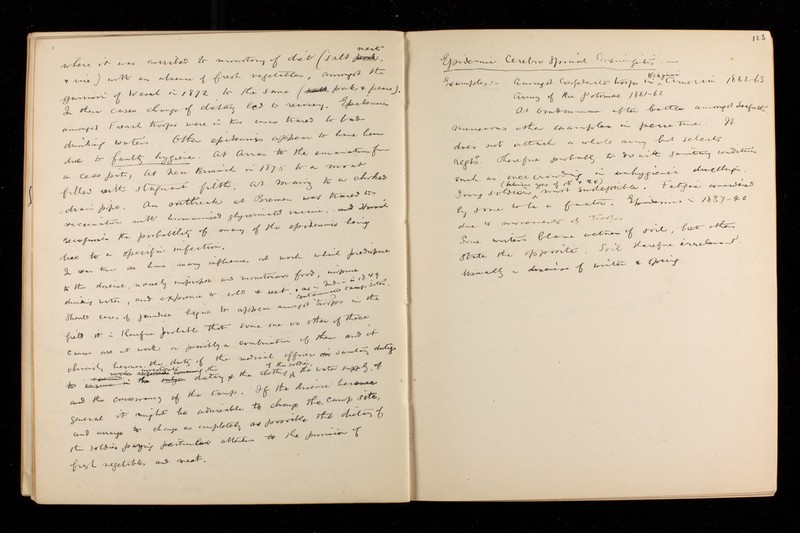 meat
where it was ascribed to monotony of diet (salt
& rice) with an absence of fresh vegetables, amongst the
garrison of Wesel in 1872 to the same ( pork & peas).
In these cases change of dietary led to recovery. Epidemics
amongst French troops were in two cases traced to bad
drinking water. Other epidemics appear to have been
due to faulty hygiene. At Arras to the emanations from
a cess pit, at New Breisach in 1875 to a moat
filled with stagnant filth, at to a choked
drain pipe. An outbreak at Bremen was traced to
vaccination with humanised glycerinated vaccine, and
recognised the probability of many of the epidemics being
due to a specific infection.
In war time we have many influences at work which predispose
to the disease, namely improper and monotonous food, impure
drinking water, and exposure to cold & wet, as in in 1849
contaminated camp sites.
Should cases of jaundice begin to appear amongst troops in the
field it is therefore probable that some one or other of these
causes are at work or possibly a combination of them and it
obviously becomes the duty of the medical officer on sanitary duties
to the dietary & the clothes of the soldier, the water supply, of
and the conservancy of the Camp. If the disease became
general it might be advisable to change the camp site,
and arrange to change as completely as possible the dietary of
the soldier paying particular attention to the provision of
fresh vegetables and meat.
123
Epidemic Cerebro Spinal Meningitis. —
Examples:- Amongst Confederate troops in Virginia 1862-63
Army of the Potomac 1861-62
At after battle amongst
numerous other examples in peace time. It
does not attack a whole army but selects
regts. therefore probably to do with sanitary conditions
such as overcrowding in unhygienic dwellings.
Young soldiers most susceptible. Fatigue considered
by some to be a factor. Epidemics in 1837-40
due to movements of troops
Some writers blame action of soil, but others
state the opposite. Soil therefore irrelevant.
Usually a disease of winter & spring